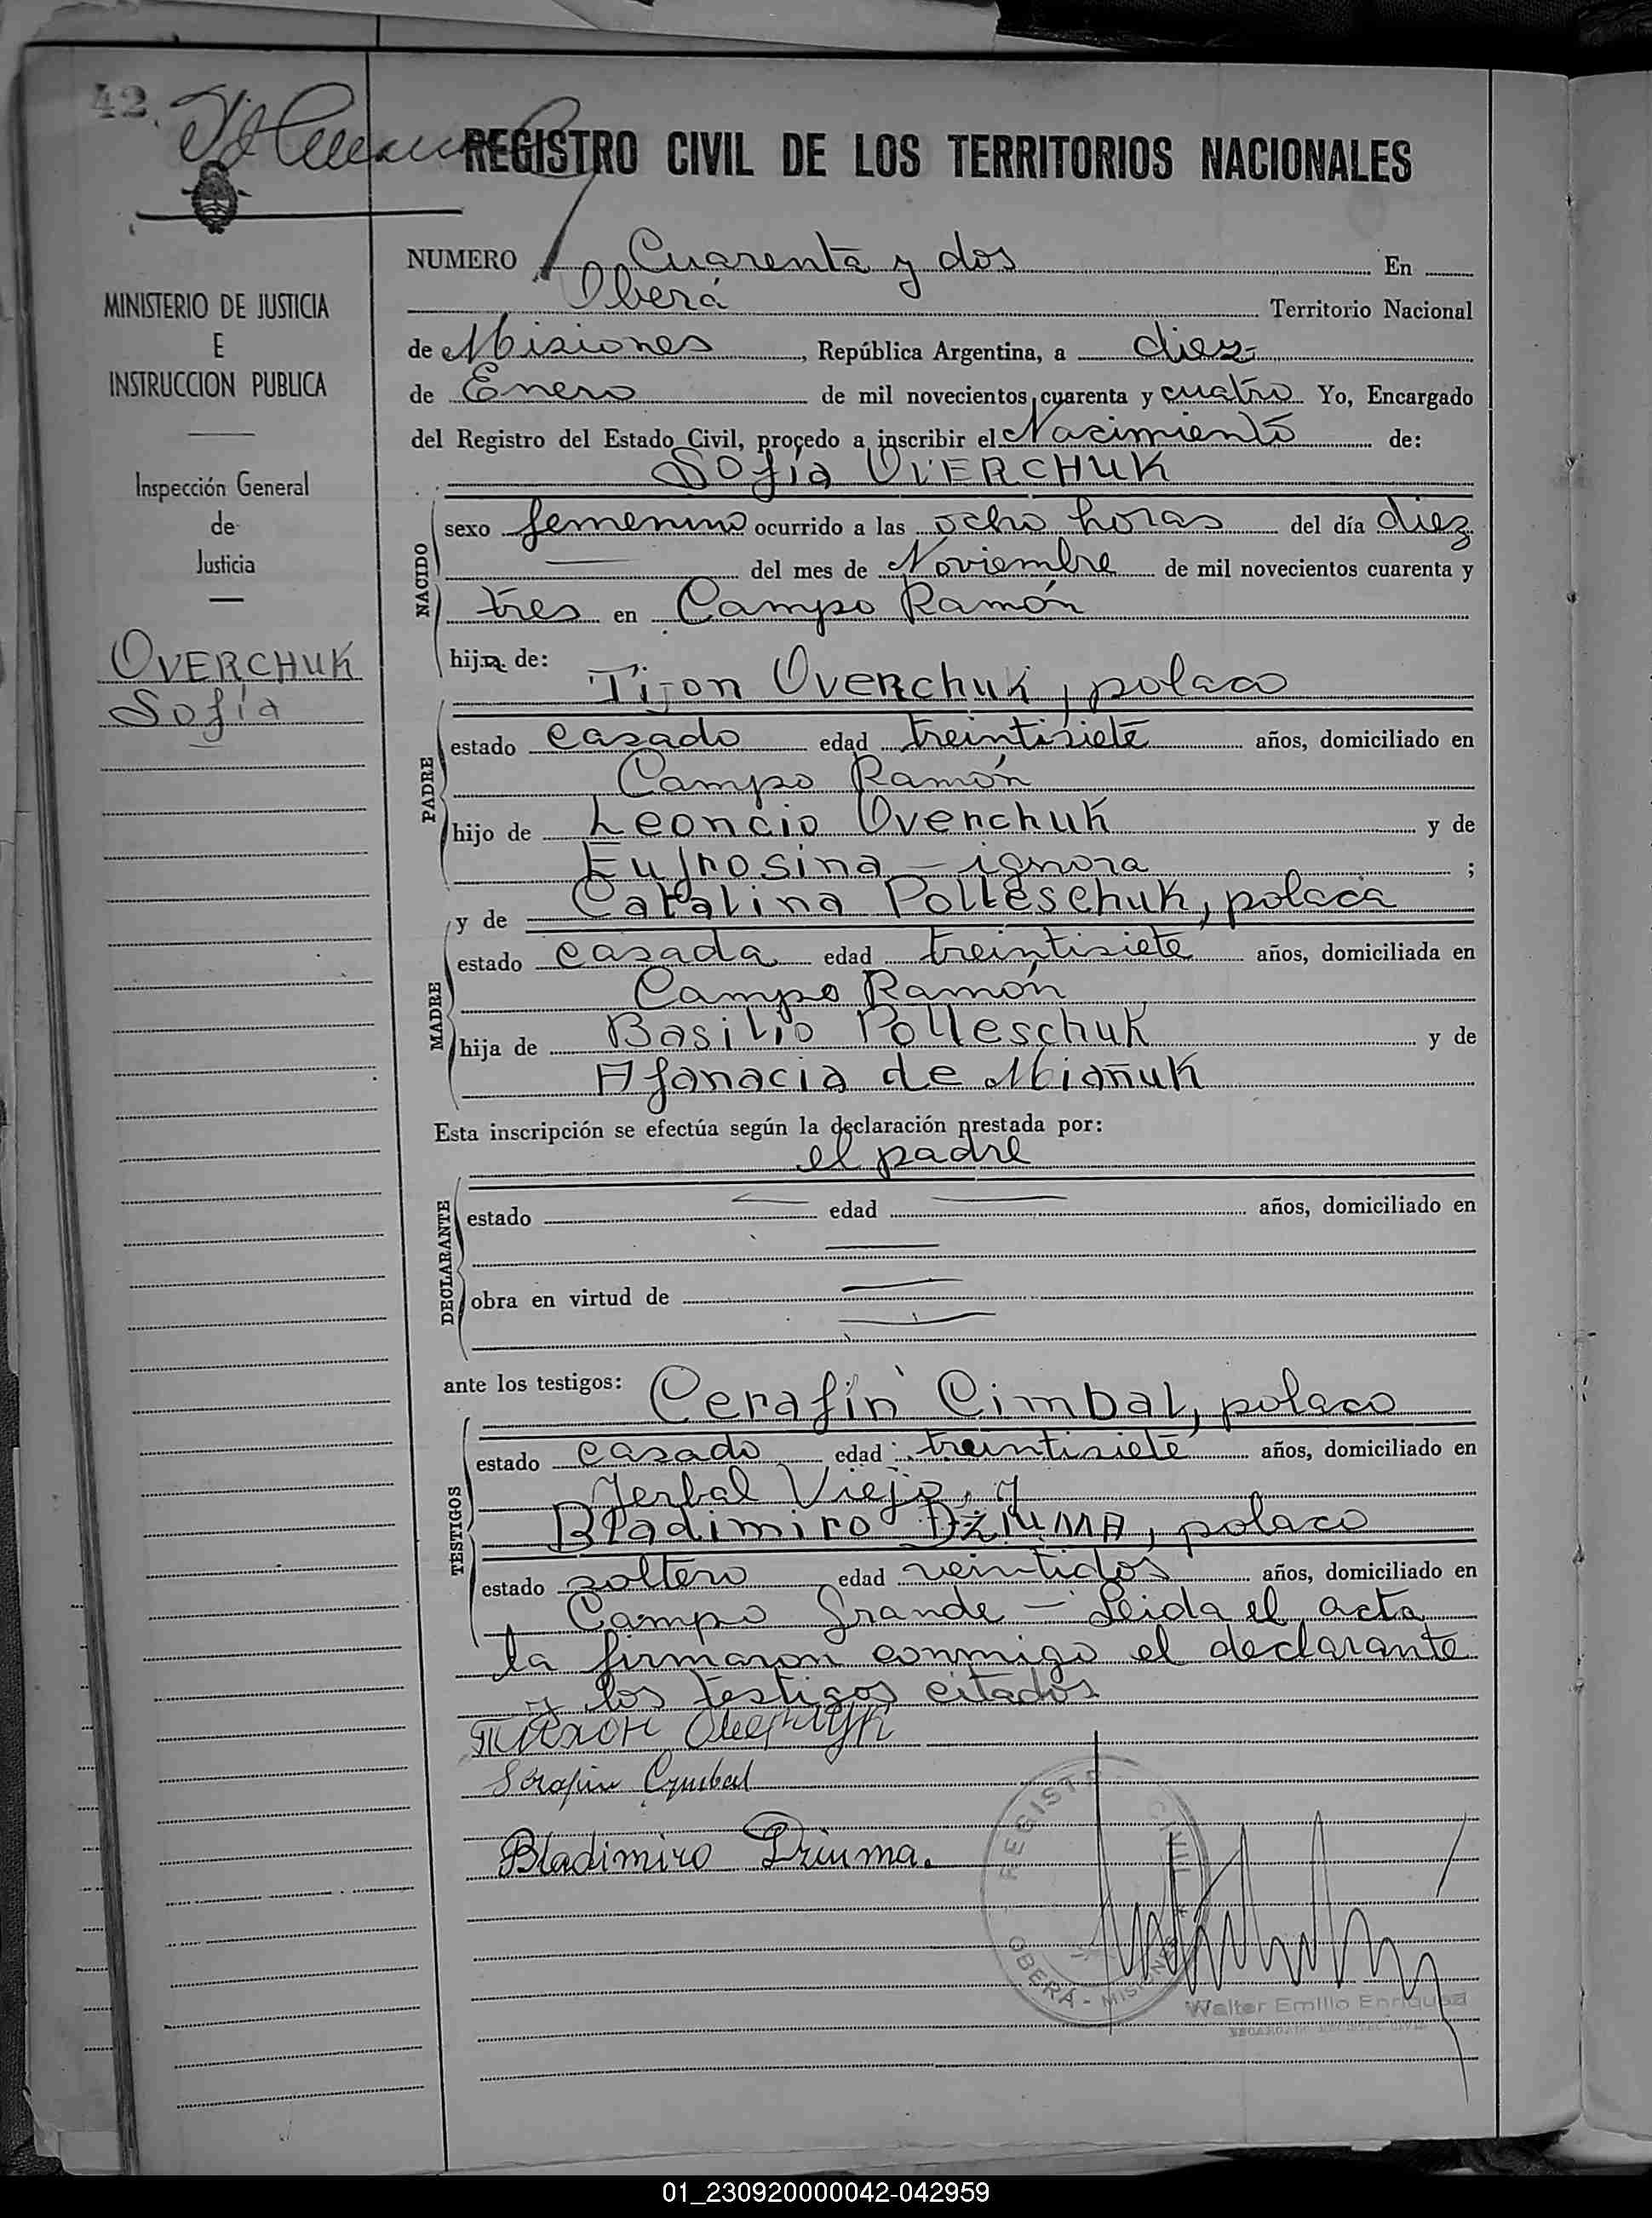 42.
REGISTRO CIVIL DE LOS TERRITORIOS NACIONALES
MINISTERIO DE JUSTICIA
E
INSTRUCCION PUBLICA
Inspección General
de
Justicia
OVERCHUK
Sofía
NUMERO Cuarenta y dos En
Oberá Territorio Nacional
de Misiones, República Argentina, a diez
de Enero de mil novecientos cuarenta y cuatro Yo, Encargado
del Registro del Estado Civil, procedo a inscribir el Nacimiento de:
Sofía OVERCHUK
NACIDO
sexo femenino ocurrido a las ocho horas del día diez
del mes de Noviembre de mil novecientos cuarenta y
tres en Campo Ramón
hija de:
Tijon Overchuk, polaco
PADRE
estado casado edad treintisiete años, domiciliado en
Campo Ramón
hijo de Leoncio Overchuk y de
Eufrosina - ignora ;
y de Catalina Polleschuk, polaca
MADRE
estado casada edad treintisiete años, domiciliada en
Campo Ramón
hija de Basilio Polleschuk y de
Afanacia de Miañuk
Esta inscripción se efectúa según la declaración prestada por:
el padre
DECLARANTE
estado edad años, domiciliado en
obra en virtud de
ante los testigos: Cerafín Cimbal, polaco
TESTIGOS
estado casado edad treintisiete años, domiciliado en
Yerbal Viejo, y
Bladimiro DZIUMA, polaco
estado soltero edad veintidos años, domiciliado en
Campo Grande - Leida el acta
la firmaron conmigo el declarante
y los testigos citados
Serafin Cymbal
Bladimiro Dziuma.
REGISTRO CIVIL
OBERÁ - MISIONES
Walter Emilio Enriquez
ENCARGADO REGISTRO CIVIL
01_230920000042-042959